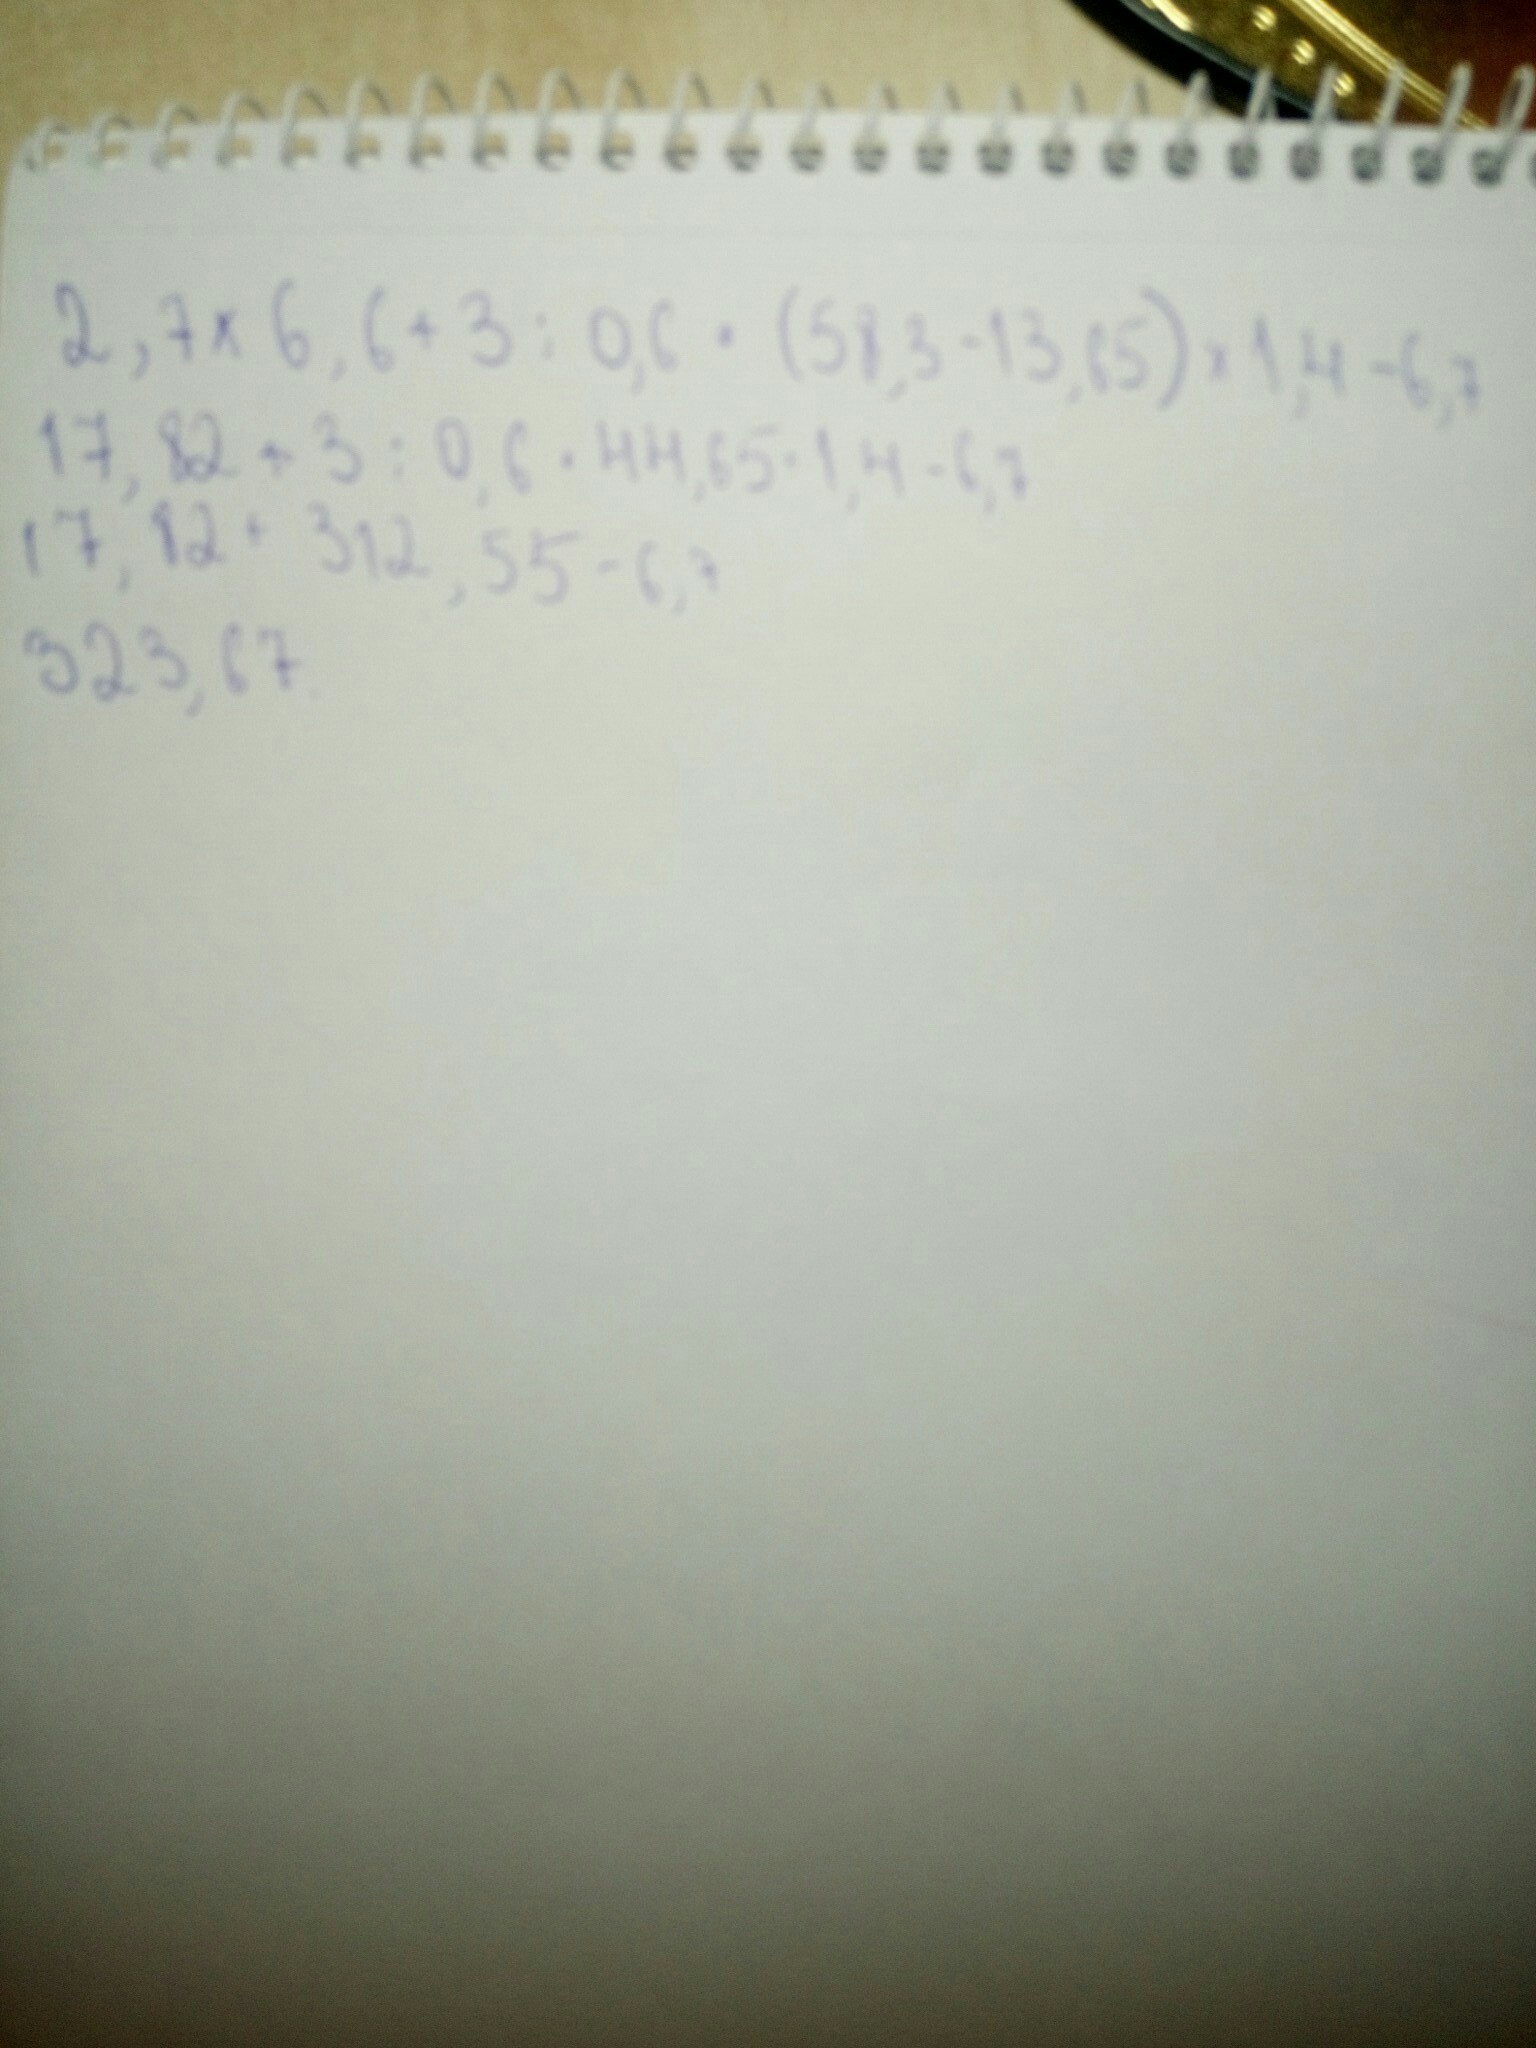 2,7 × 6,6 + 3 : 0,6 · (58,3 - 13,65) × 1,4 - 6,7
17,82 + 3 : 0,6 · 44,65 · 1,4 - 6,7
17,82 + 312,55 - 6,7
323,67